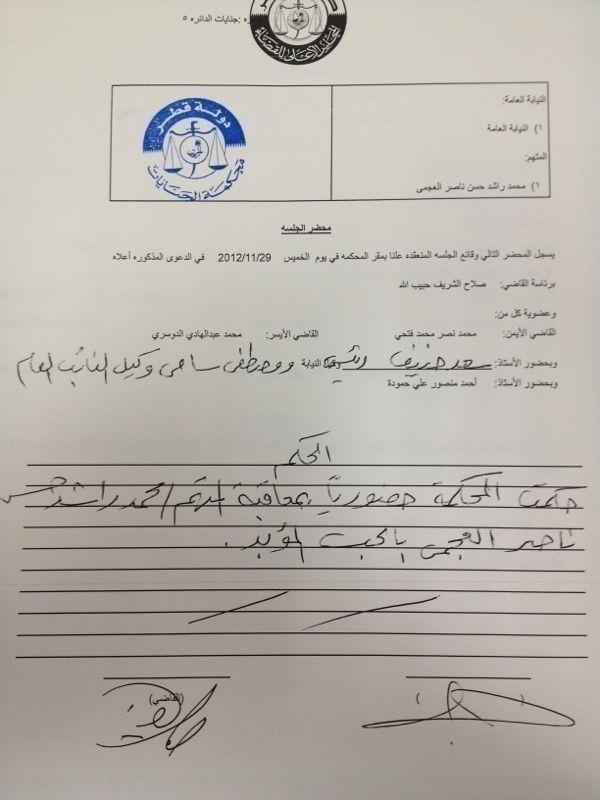 جنايات الدائره ٥
المجلس الأعلى للقضاء
دولة قطر
محكمة الجنايات
النيابة العامة:
١) النيابة العامة
المتهم:
١) محمد راشد حسن ناصر العجمى
محضر الجلسه
يسجل المحضر التالي وقائع الجلسه المنعقده علنا بمقر المحكمه في يوم الخميس 2012/11/29 في الدعوى المذكوره أعلاه
برئاسة القاضي: صلاح الشريف حبيب الله
وعضوية كل من:
القاضي الأيمن: محمد نصر محمد فتحي القاضي الأيسر: محمد عبدالهادي الدوسري
وبحضور الأستاذ: سعد النيابة ومصطفى سامى وكيل النائب العام
وبحضور الأستاذ: أحمد منصور علي حمودة
الحكم
حكمت المحكمة حضورياً بمعاقبة المتهم / محمد راشد حسن
ناصر العجمى بالحبس المؤبد.
(القاضي)